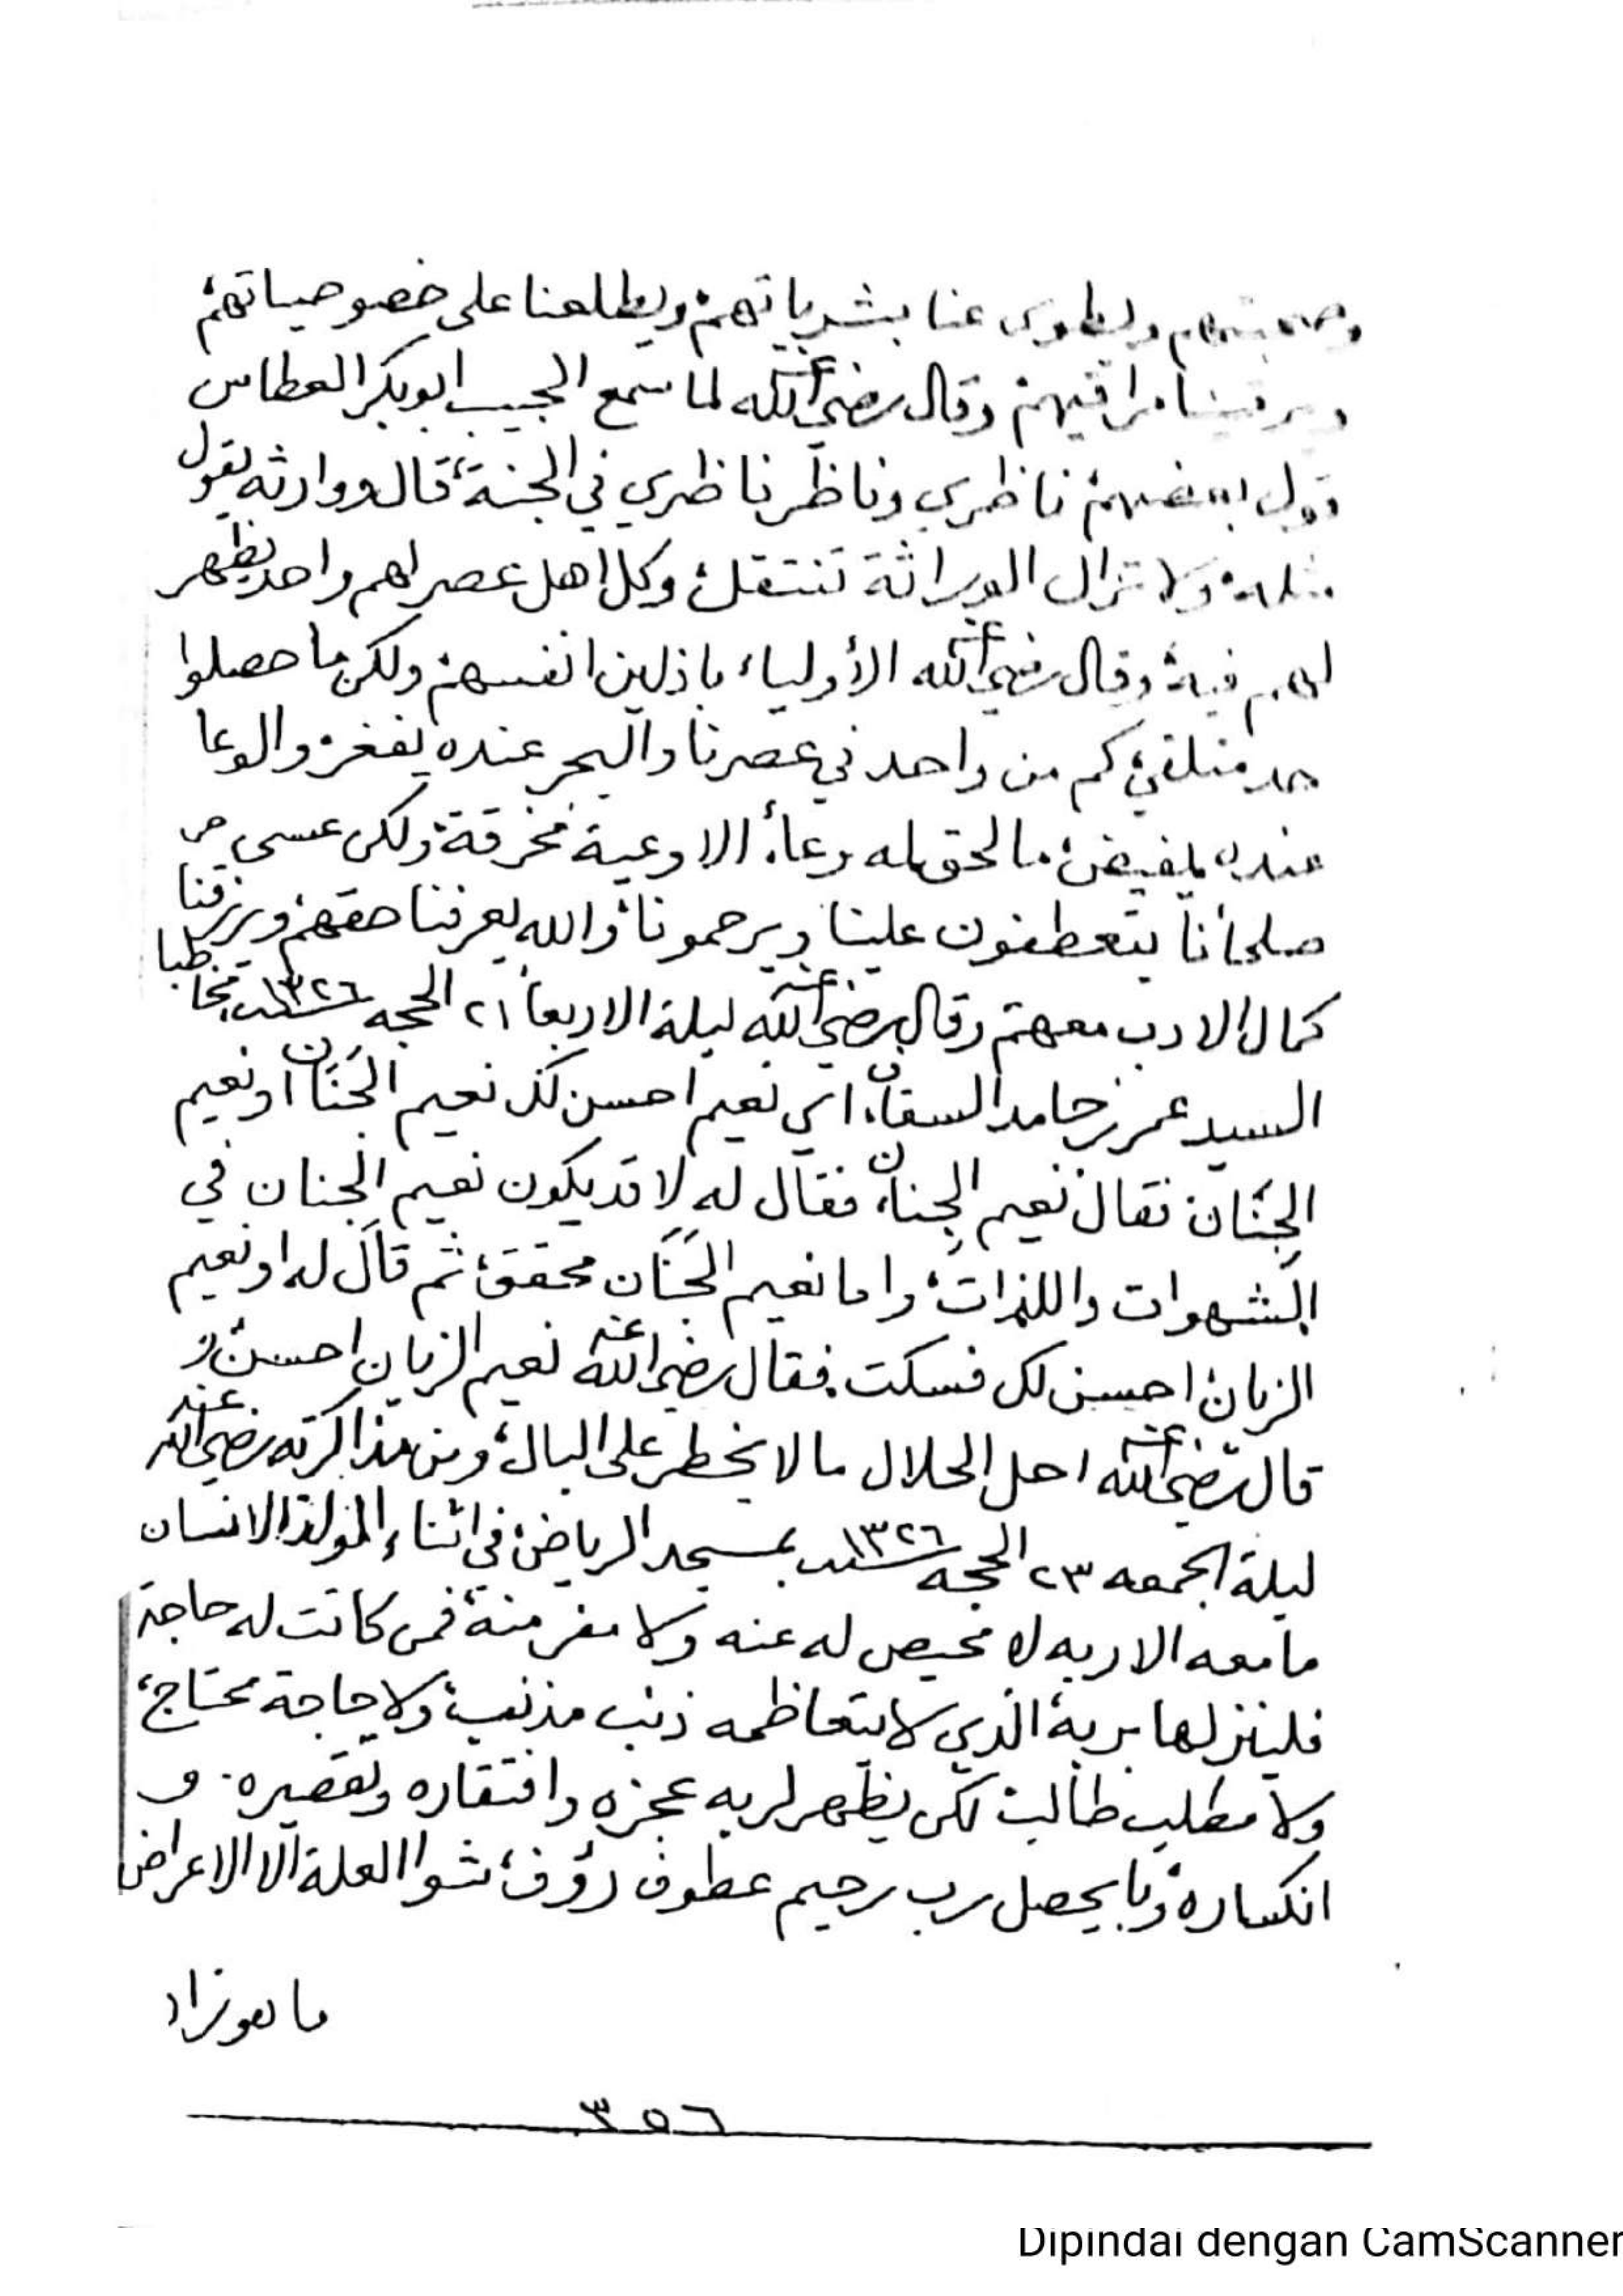 ويطوى عنا بشرياتهم ويطلعنا على خصوصياتهم
مراقيهم وقال رضي الله عنه لما سمع الحبيب ابوبكر العطاس
قول بعضهم ناظري وناظر ناظري في الجنة قال ووارثه يقول
مثله ولا تزال الوراثة تنتقل وكل اهل عصر لهم واحد يظهر
لهم فيه وقال رضي الله عنه الأولياء باذلين انفسهم ولكن ما حصلوا
حد متلقي كم من واحد في عصرنا والبحر عنده يفغر والوعا
عنده يفيض ما لحق له وعاء الاوعية مخرقة ولكن عسى من
صلحائنا يتعطفون علينا ويرحمونا والله يعرفنا حقهم ويرزقنا
كمال الادب معهم وقال رضي الله عنه ليلة الاربعا ٢١ الحجه سنة ١٣٢٦ مخاطبا
السيد عمر بن حامد السقاف اي نعيم احسن لك نعيم الجَنَان او نعيم
الجِنَان فقال نعيم الجِنان فقال له لا قد يكون نعيم الجنان في
الشهوات واللذات واما نعيم الجَنَان محقق ثم قال له او نعيم
الزيان احسن لك فسكت فقال رضي الله عنه نعيم الزيان احسن و
قال رضي الله عنه احل الحلال ما لا يخطر على البال ومن مذاكرته رضي الله عنه
ليلة الجمعه ٢٣ الحجه سنة ١٣٢٦ بمسجد الرياض في اثناء المولد الانسان
ما معه الا ربه لا محيص له عنه ولا مفر منه فمن كانت له حاجة
فلينزلها بربه الذي لا يتعاظمه ذنب مذنب ولا حاجة محتاج
ولا مطلب طالب لكن يظهر لربه عجزه وافتقاره وتقصيره و
انكساره وبا يحصل رب رحيم عطوف رؤوف شوا العلة الا الاعراض
ما هو زاد
٣٥٦
Dipindai dengan CamScanner